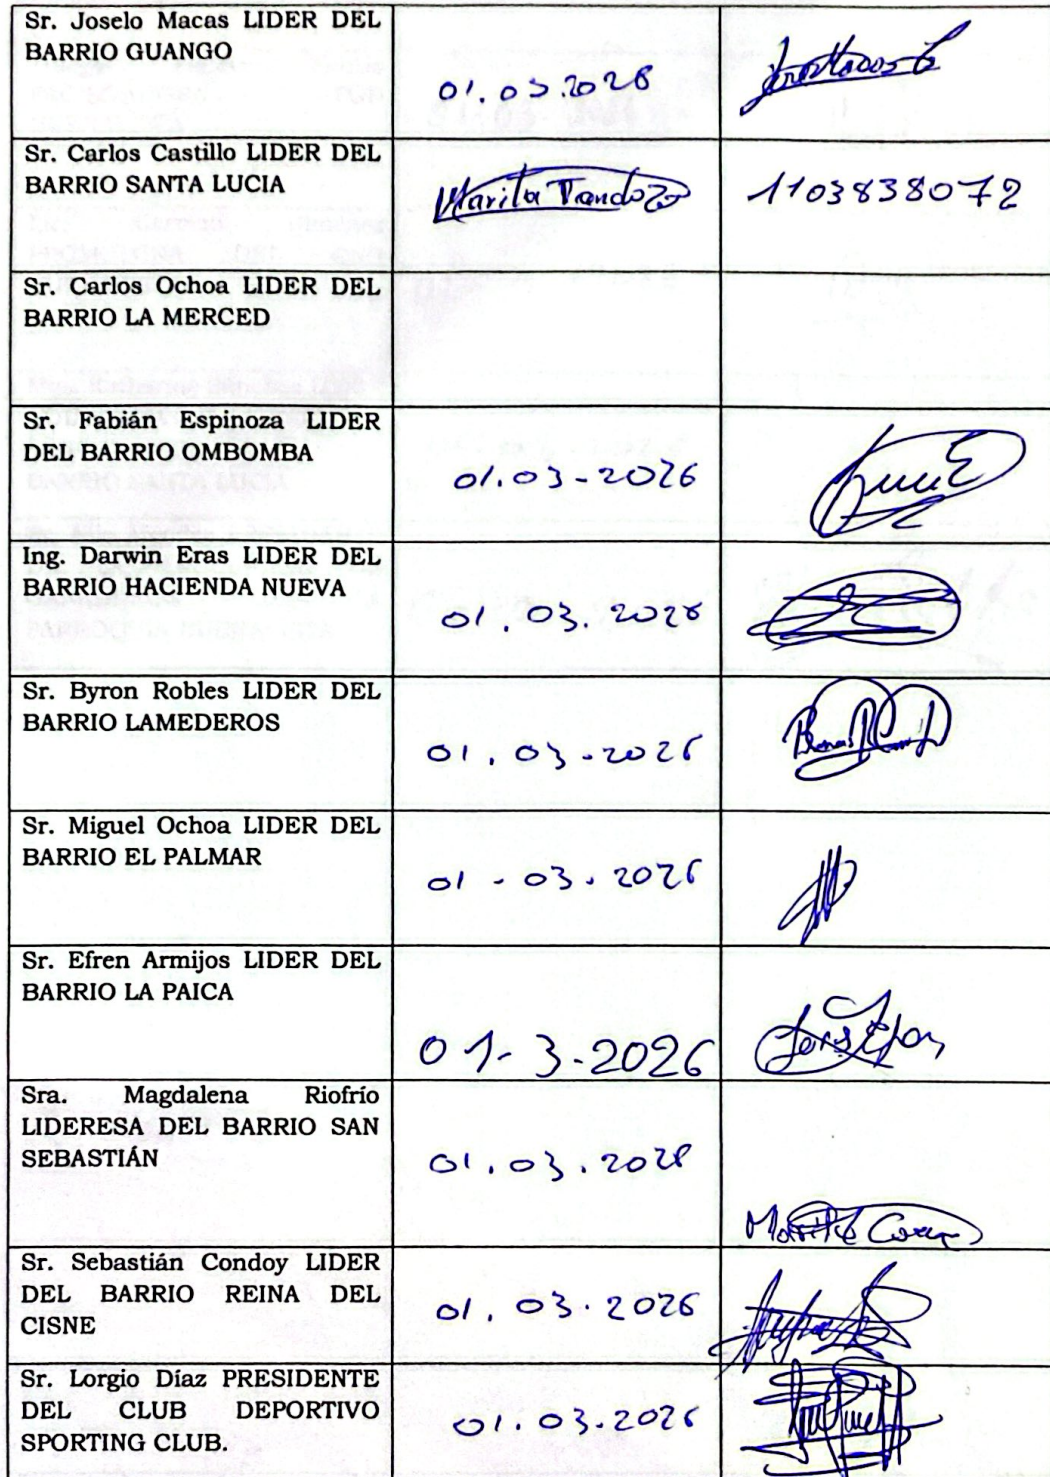 Sr. Joselo Macas LIDER DEL
BARRIO GUANGO
01.03.2026
Sr. Carlos Castillo LIDER DEL
BARRIO SANTA LUCIA
Marita 1103838072
Sr. Carlos Ochoa LIDER DEL
BARRIO LA MERCED
Sr. Fabián Espinoza LIDER
DEL BARRIO OMBOMBA
01.03-2026
Ing. Darwin Eras LIDER DEL
BARRIO HACIENDA NUEVA
01.03.2026
Sr. Byron Robles LIDER DEL
BARRIO LAMEDEROS
01.03.2026
Sr. Miguel Ochoa LIDER DEL
BARRIO EL PALMAR
01-03.2026
Sr. Efren Armijos LIDER DEL
BARRIO LA PAICA
01-3-2026
Sra. Magdalena Riofrío
LIDERESA DEL BARRIO SAN
SEBASTIÁN
01.03.2026
Sr. Sebastián Condoy LIDER
DEL BARRIO REINA DEL
CISNE
01.03.2026
Sr. Lorgio Díaz PRESIDENTE
DEL CLUB DEPORTIVO
SPORTING CLUB.
01.03.2026